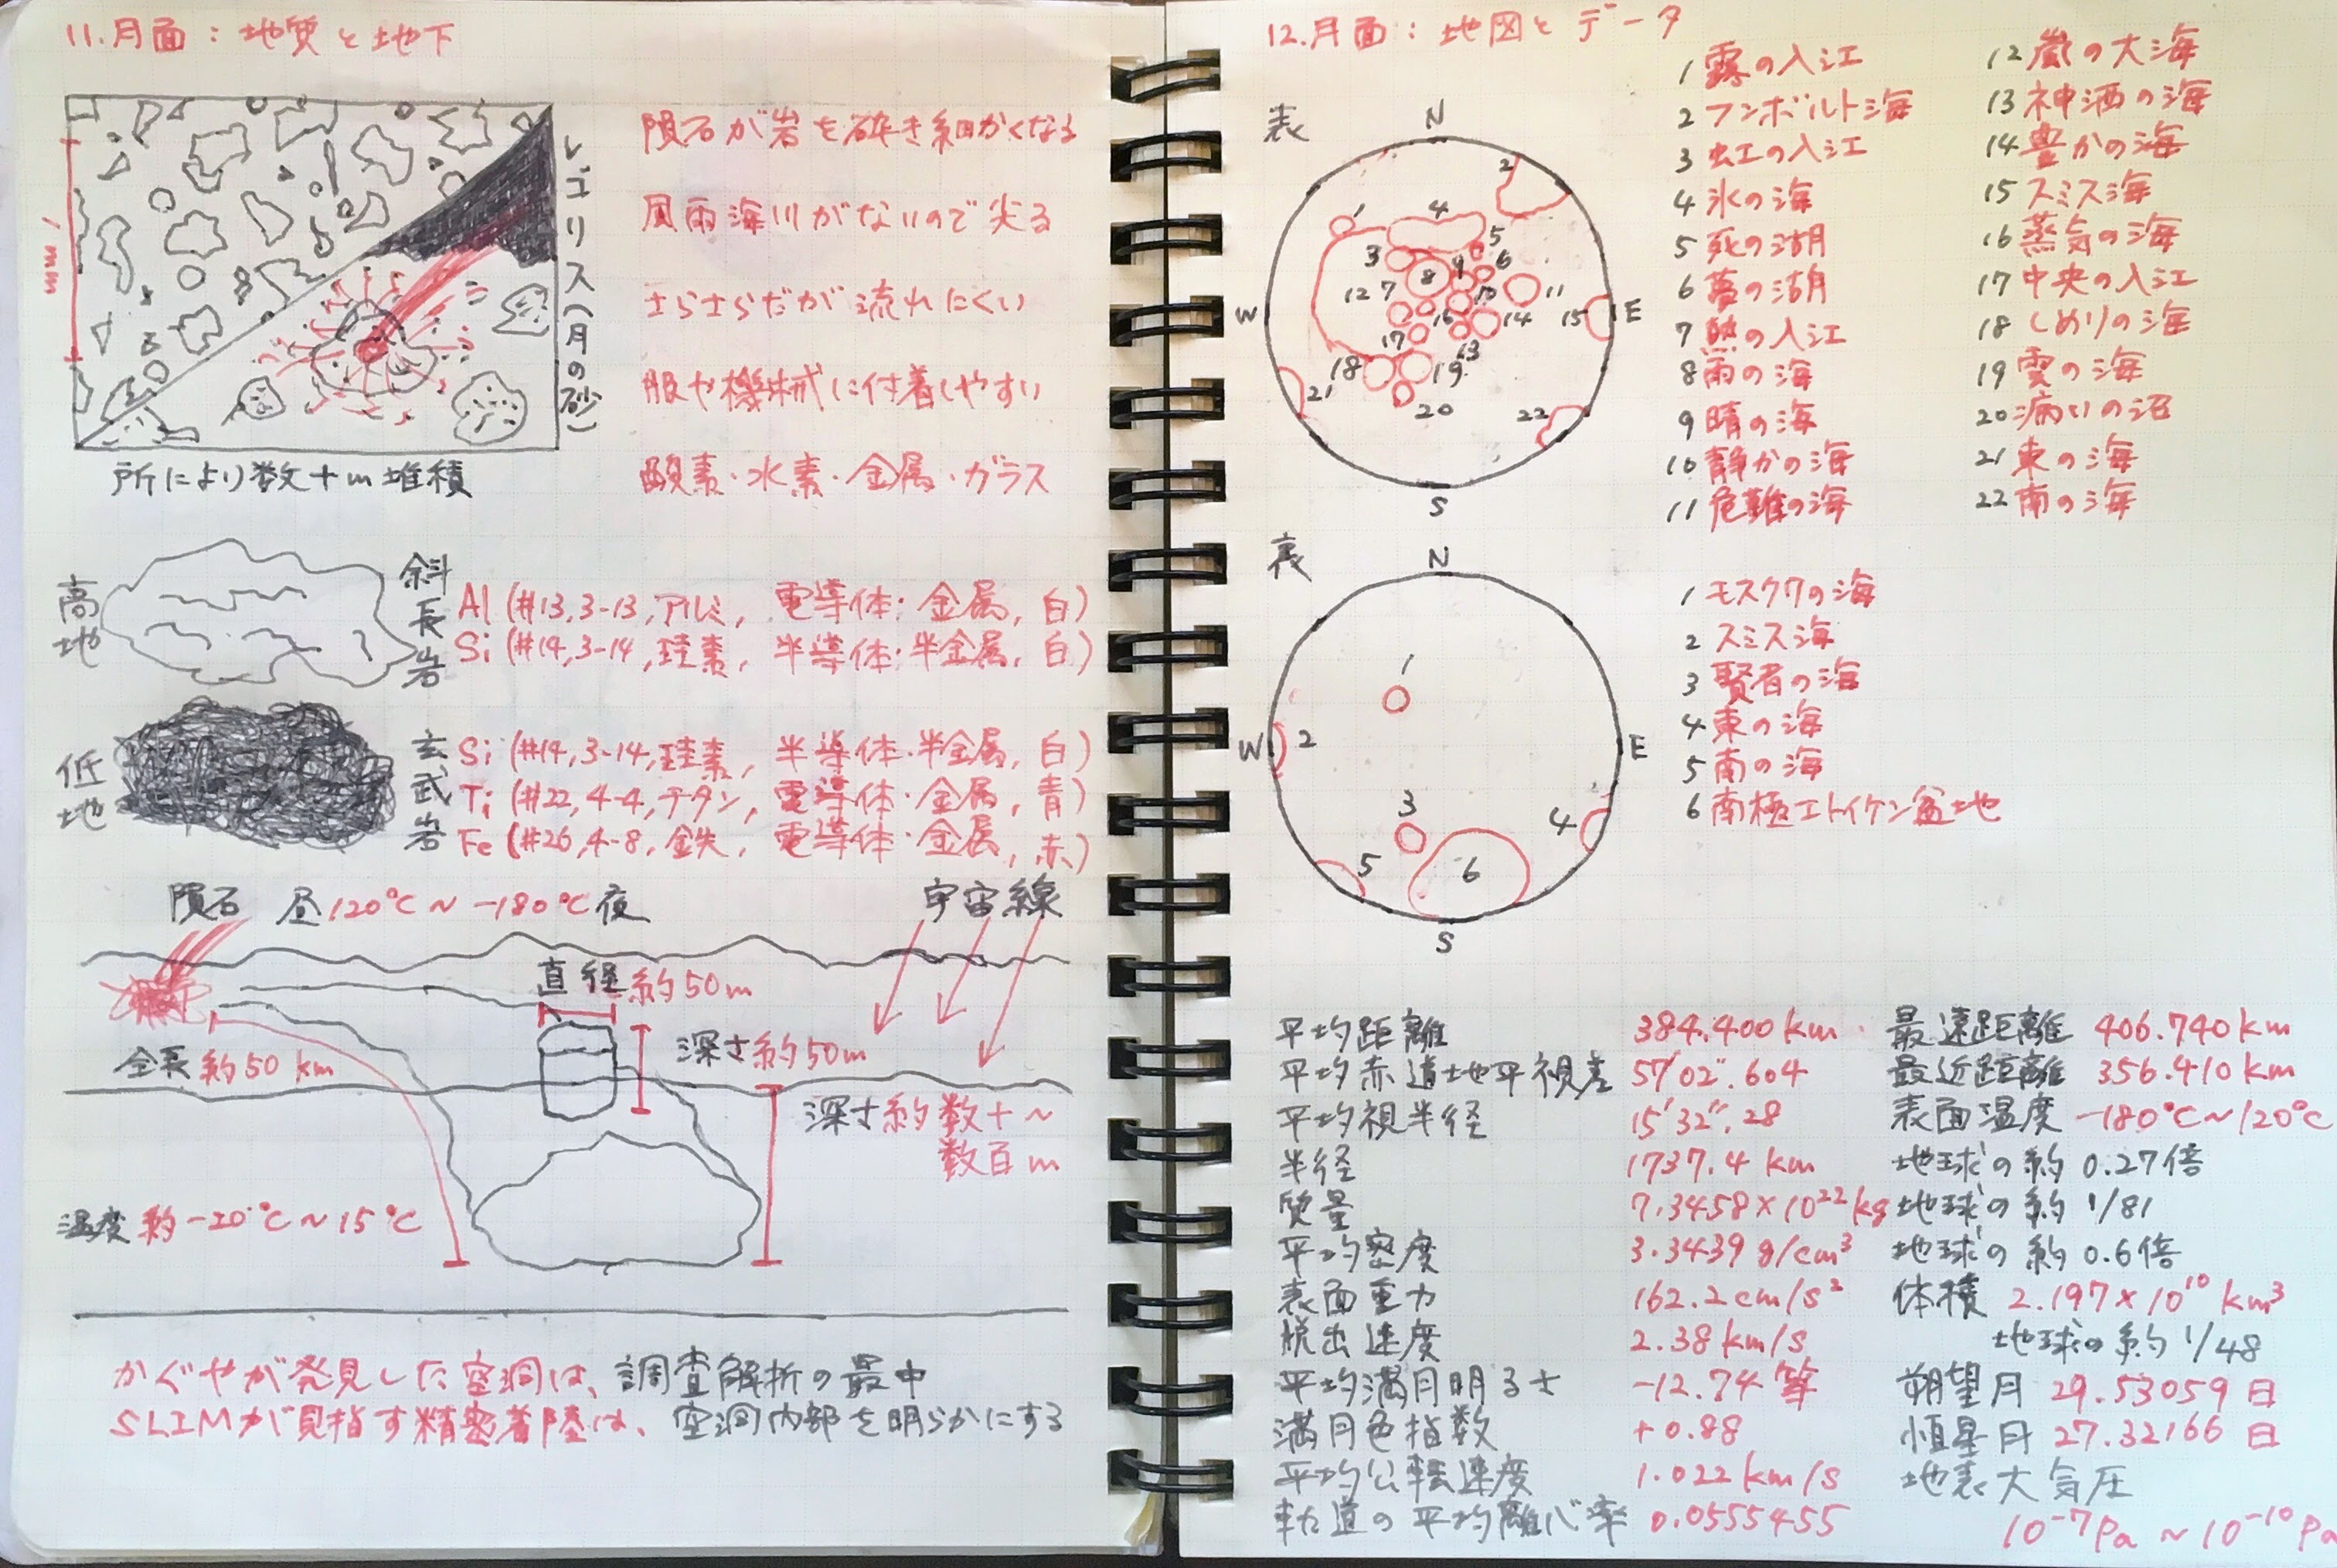 11.月面：地質と地下
1mm
レゴリス(月の砂)
所により数十m堆積
隕石が岩を砕き細かくなる
風雨海川がないので尖る
さらさらだが流れにくい
服や機械に付着しやすい
酸素・水素・金属・ガラス
高地
斜長岩
Al (#13,3-13,アルミ, 電導体・金属, 白)
Si (#14,3-14,珪素, 半導体・半金属, 白)
低地
玄武岩
Si (#14,3-14,珪素, 半導体・半金属, 白)
Ti (#22,4-4,チタン, 電導体・金属, 青)
Fe (#26,4-8,鉄, 電導体・金属, 赤)
隕石 昼120℃～-180℃夜
宇宙線
直径約50m
深さ約50m
全長約50km
深さ約数十～
数百m
温度約-20℃～15℃
かぐやが発見した空洞は、調査解析の最中
SLIMが目指す精密着陸は、空洞内部を明らかにする
12.月面：地図とデータ
表
N
W
E
S
1
2
3
4
5
6
7
8
9
10
11
12
13
14
15
16
17
18
19
20
21
22
1 露の入江
2 フンボルト海
3 虹の入江
4 氷の海
5 死の湖
6 夢の湖
7 熱の入江
8 雨の海
9 晴の海
10 静かの海
11 危難の海
12 嵐の大海
13 神酒の海
14 豊かの海
15 スミス海
16 蒸気の海
17 中央の入江
18 しめりの海
19 雲の海
20 病いの沼
21 東の海
22 南の海
N
W
E
S
1
2
3
4
5
6
1 モスクワの海
2 スミス海
3 賢者の海
4 東の海
5 南の海
6 南極エトイケン盆地
平均距離 384.400km
平均赤道地平視差 57'02".604
平均視半径 15'32".28
半径 1737.4 km
質量 7.3458×10²²kg
平均密度 3.3439 g/cm³
表面重力 162.2cm/s²
脱出速度 2.38km/s
平均満月明るさ -12.74等
満月色指数 +0.88
平均公転速度 1.022km/s
軌道の平均離心率 0.0555455
最遠距離 406.740km
最近距離 356.410km
表面温度 -180℃～120℃
地球の約0.27倍
地球の約1/81
地球の約0.6倍
体積 2.197×10¹⁰km³
地球の約1/48
朔望月 29.53059日
恒星月 27.32166日
地表大気圧
10⁻⁷Pa～10⁻¹⁰Pa